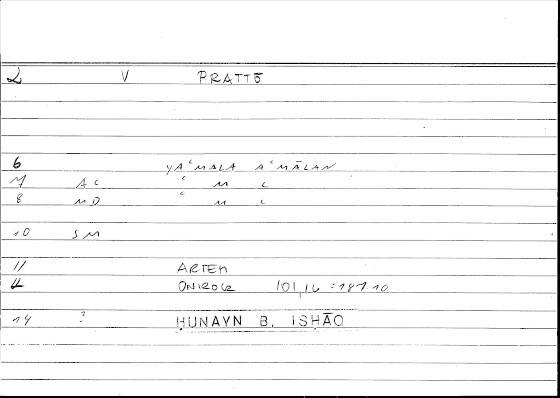 2 V PRATTŌ
6 YAʿMALA AʿMĀLAN
7 AC ʿ M L
8 MD ʿ M L
10 SM
11 ARTEM
ONIROCR 101,16 :187.10
14 ? ḤUNAYN B. ISḤĀQ